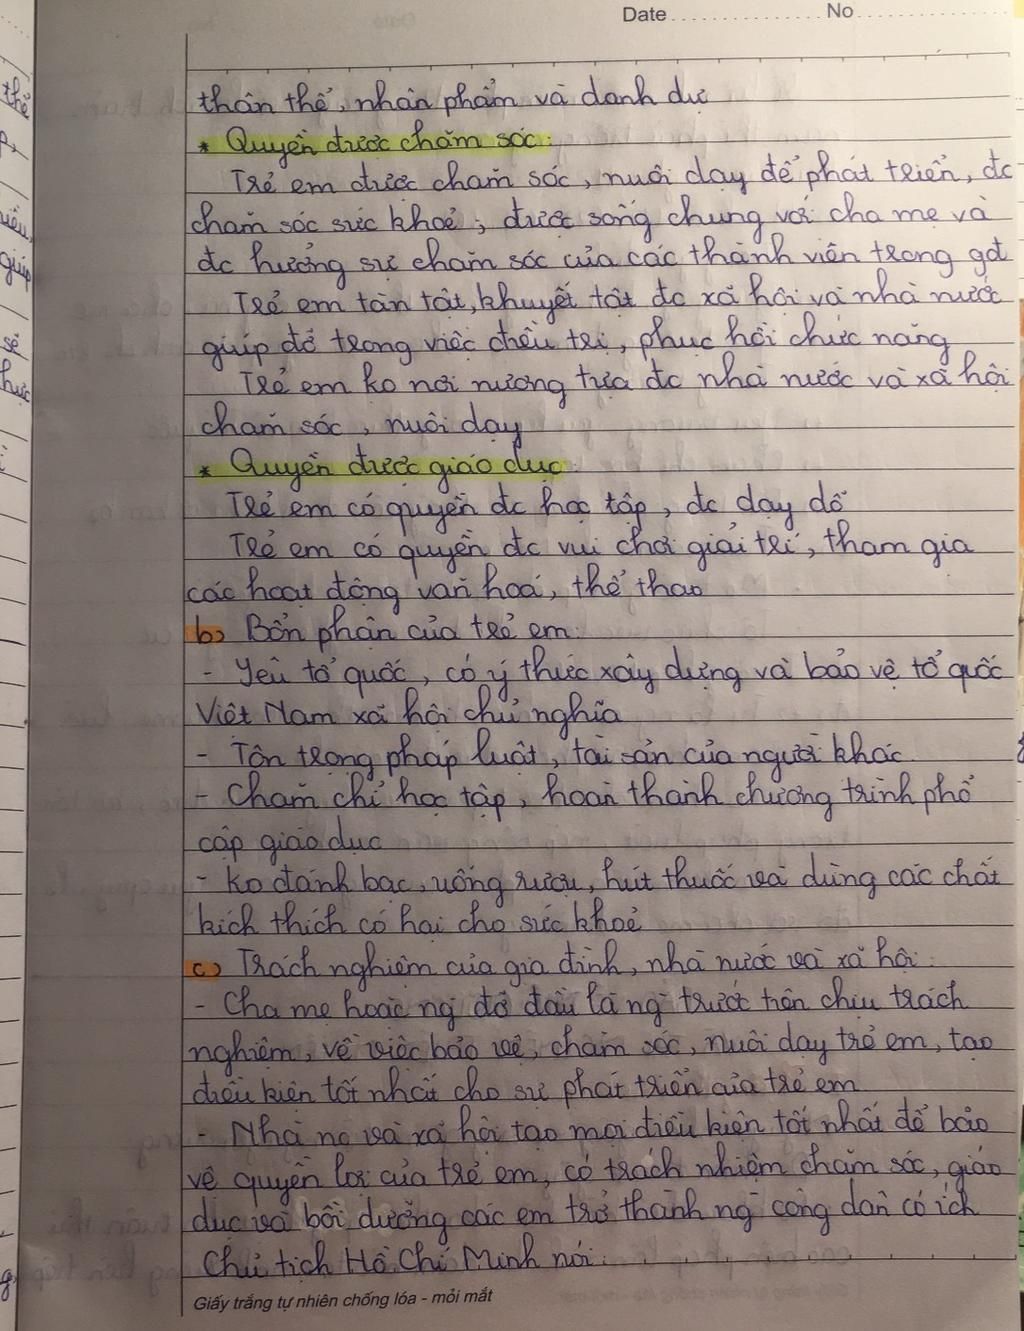 Date No
thân thể, nhân phẩm và danh dự
* Quyền được chăm sóc:
Trẻ em được chăm sóc, nuôi dạy để phát triển, đc
chăm sóc sức khoẻ; được sống chung với cha mẹ và
đc hưởng sự chăm sóc của các thành viên trong gđ
Trẻ em tàn tật, khuyết tật đc xã hội và nhà nước
giúp đỡ trong việc điều trị, phục hồi chức năng
Trẻ em ko nơi nương tựa đc nhà nước và xã hội
chăm sóc, nuôi dạy
* Quyền được giáo dục:
Trẻ em có quyền đc học tập, đc dạy dỗ
Trẻ em có quyền đc vui chơi giải trí, tham gia
các hoạt động văn hoá, thể thao
b) Bổn phận của trẻ em:
- Yêu tổ quốc, có ý thức xây dựng và bảo vệ tổ quốc
Việt Nam xã hội chủ nghĩa
- Tôn trọng pháp luật, tài sản của người khác.
- Chăm chỉ học tập, hoàn thành chương trình phổ
cập giáo dục
- ko đánh bạc, uống rượu, hút thuốc và dùng các chất
kích thích có hại cho sức khoẻ
c) Trách nghiệm của gia đình, nhà nước và xã hội:
- Cha mẹ hoặc ng đỡ đầu là ng trước tiên chịu trách
nghiệm, về việc bảo vệ, chăm sóc, nuôi dạy trẻ em, tạo
điều kiện tốt nhất cho sự phát triển của trẻ em
- Nhà nc và xã hội tạo mọi điều kiện tốt nhất để bảo
vệ quyền lợi của trẻ em, có trách nhiệm chăm sóc, giáo
dục và bồi dưỡng các em trở thành ng công dân có ích
Chủ tịch Hồ Chí Minh nói:
Giấy trắng tự nhiên chống lóa - mỏi mắt
thể
giúp
sẻ